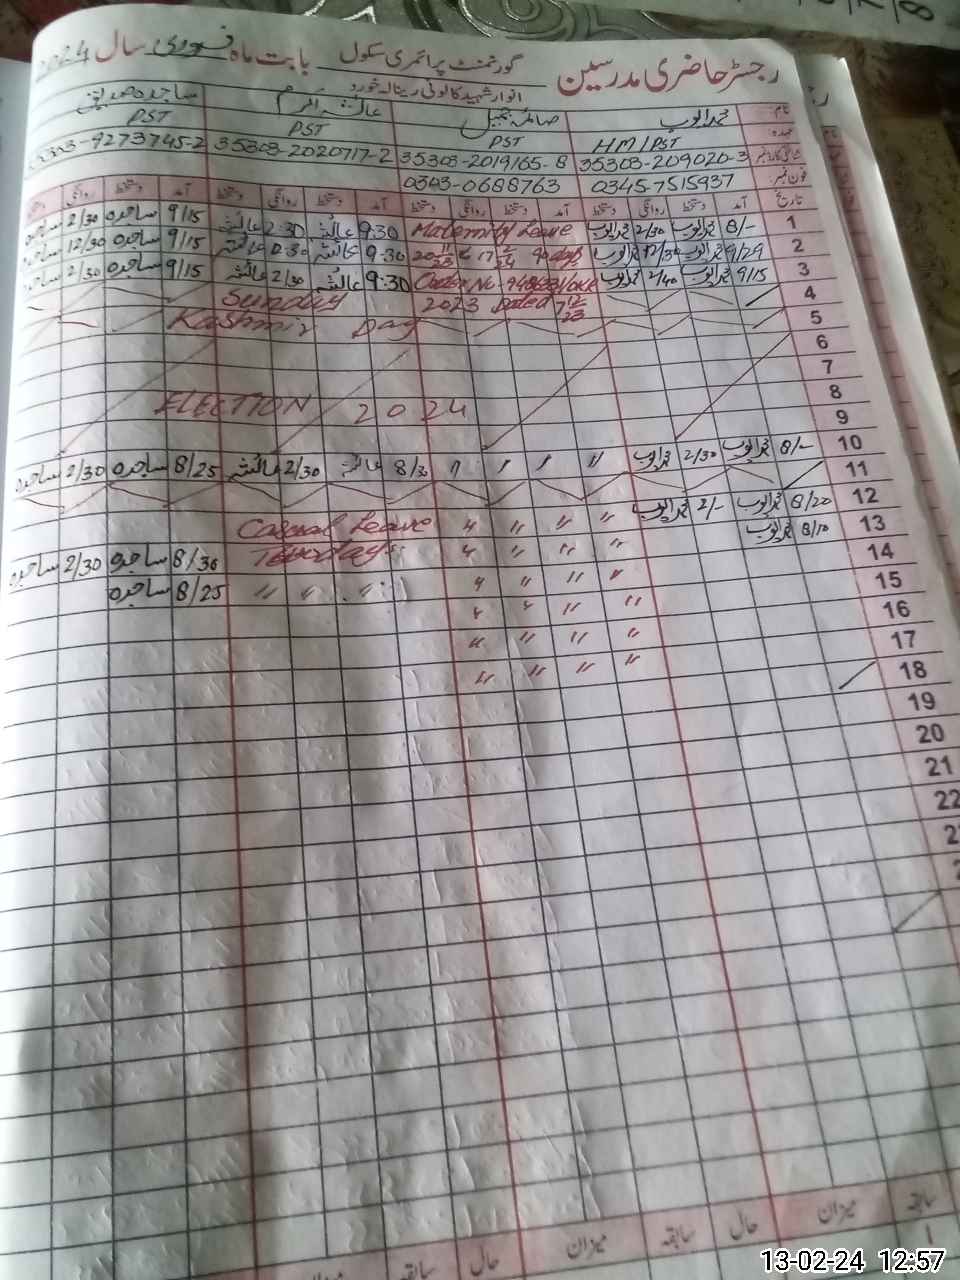 رجسٹر حاضری مدرسین گورنمنٹ پرائمری سکول بابت ماہ فروری سال 2024
انوار شہید کالونی رینالہ خورد
نام محمد ایوب صائمہ جمیل عائشہ اکرم ساجدہ صدیق
عہدہ HM/PST PST PST PST
شناختی کارڈ نمبر 35303-209020-3 35303-2019165-8 35303-2020717-2 35303-9273745-2
فون نمبر 0345-7515937 0303-0688763
تاریخ آمد دستخط روانگی دستخط آمد دستخط روانگی دستخط آمد دستخط روانگی دستخط آمد دستخط روانگی دستخط
1 8/- محمد ایوب 2/30 محمد ایوب Maternity Leave 9:30 عائشہ 2:30 عائشہ 9/15 ساجدہ 2/30 ساجدہ
2 9/29 محمد ایوب 12/30 محمد ایوب 90 days 9:30 عائشہ عائشہ 9/15 ساجدہ 12/30 ساجدہ
3 9/15 محمد ایوب 2/40 محمد ایوب Order No 9:30 عائشہ 2/30 عائشہ 9/15 ساجدہ 2/30 ساجدہ
4 Sunday 2023 Dated 7 12/23
5 Kashmir Day
6
7
8 ELECTION 2024
9
10 8/- محمد ایوب 2/30 محمد ایوب " " " " 8/30 عائشہ 2/30 عائشہ 8/25 ساجدہ 2/30 ساجدہ
11
12 8/20 محمد ایوب 2/- محمد ایوب " " " " Casual Leave 8/30 ساجدہ 2/30 ساجدہ
13 8/10 محمد ایوب " " " " " " " " 8/25 ساجدہ
14 " " " "
15 " " " "
16 " " " "
17 " " " "
18
19
20
21
22
سابقہ میزان حال سابقہ میزان حال سابقہ میزان
13-02-24 12:57